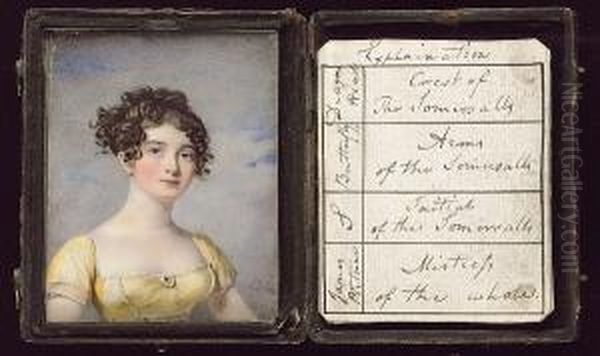 Explaination
Crest of
The Somervalls
Butterfly
Arms
of the Somervalls
S
Initial
of the Somervalls
Mistress
of the whole.
NiceArtGallery.com